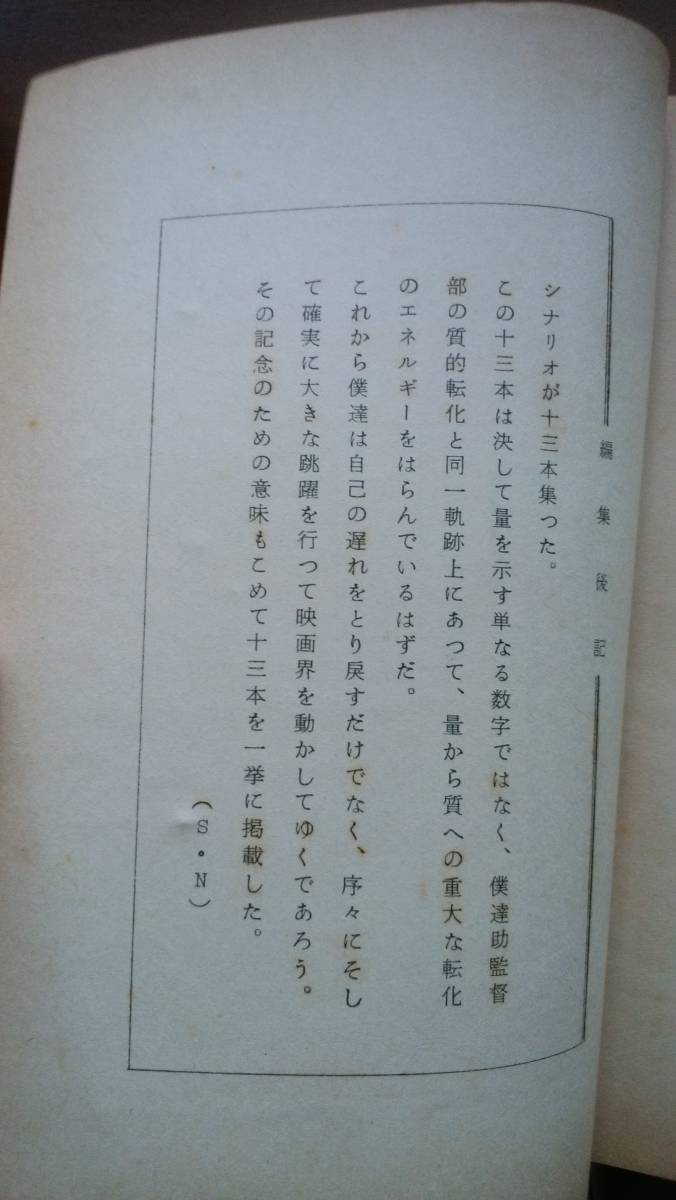 編集後記
シナリオが十三本集つた。
この十三本は決して量を示す単なる数字ではなく、僕達助監督
部の質的転化と同一軌跡上にあつて、量から質への重大な転化
のエネルギーをはらんでいるはずだ。
これから僕達は自己の遅れをとり戻すだけでなく、序々にそし
て確実に大きな跳躍を行つて映画界を動かしてゆくであろう。
その記念のための意味もこめて十三本を一挙に掲載した。
(S・N)